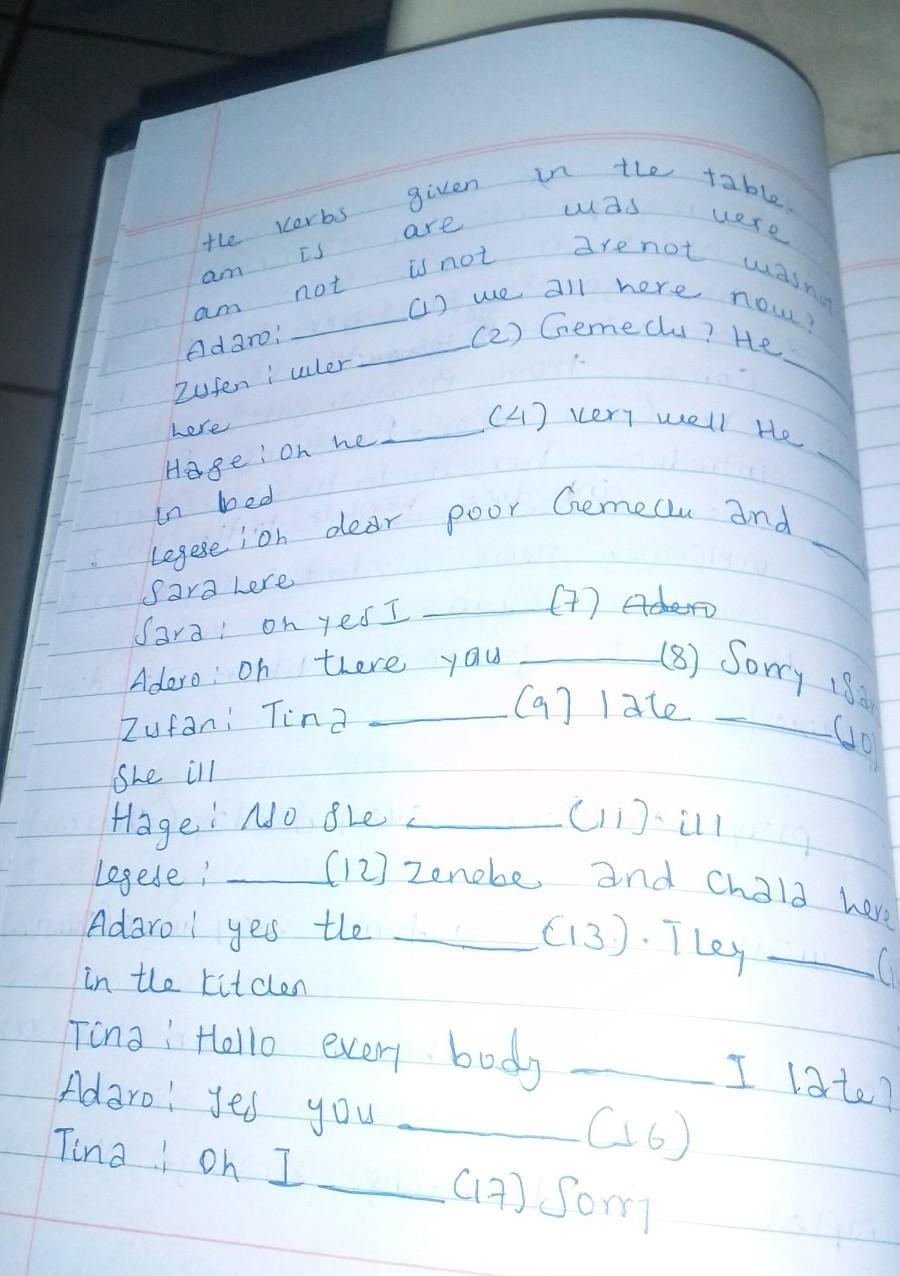 the verbs given in the table.
am is are was were
am not is not are not was not
Adaro: ______ (1) we all here now?
Zufen: wler ______ (2) Gemechu? He ______
here
Hage: oh he ______ (4) very well He ______
in bed
Legese: oh dear poor Gemechu and ______
Sara here
Sara: oh yes I ______ (7) Adero
Adero: oh there you ______ (8) Sorry, Sar
Zufan: Tina ______ (9) late ______ (10)
She ill
Hage: No She ______ (11). ill
Legese: ______ (12) Zenebe and Chala here
Adaro: yes the ______ (13). They ______ (1
in the kitchen
Tina: Hello every body ______ I late?
Adaro: yes you ______ (16)
Tina: oh I ______ (17) Sorry